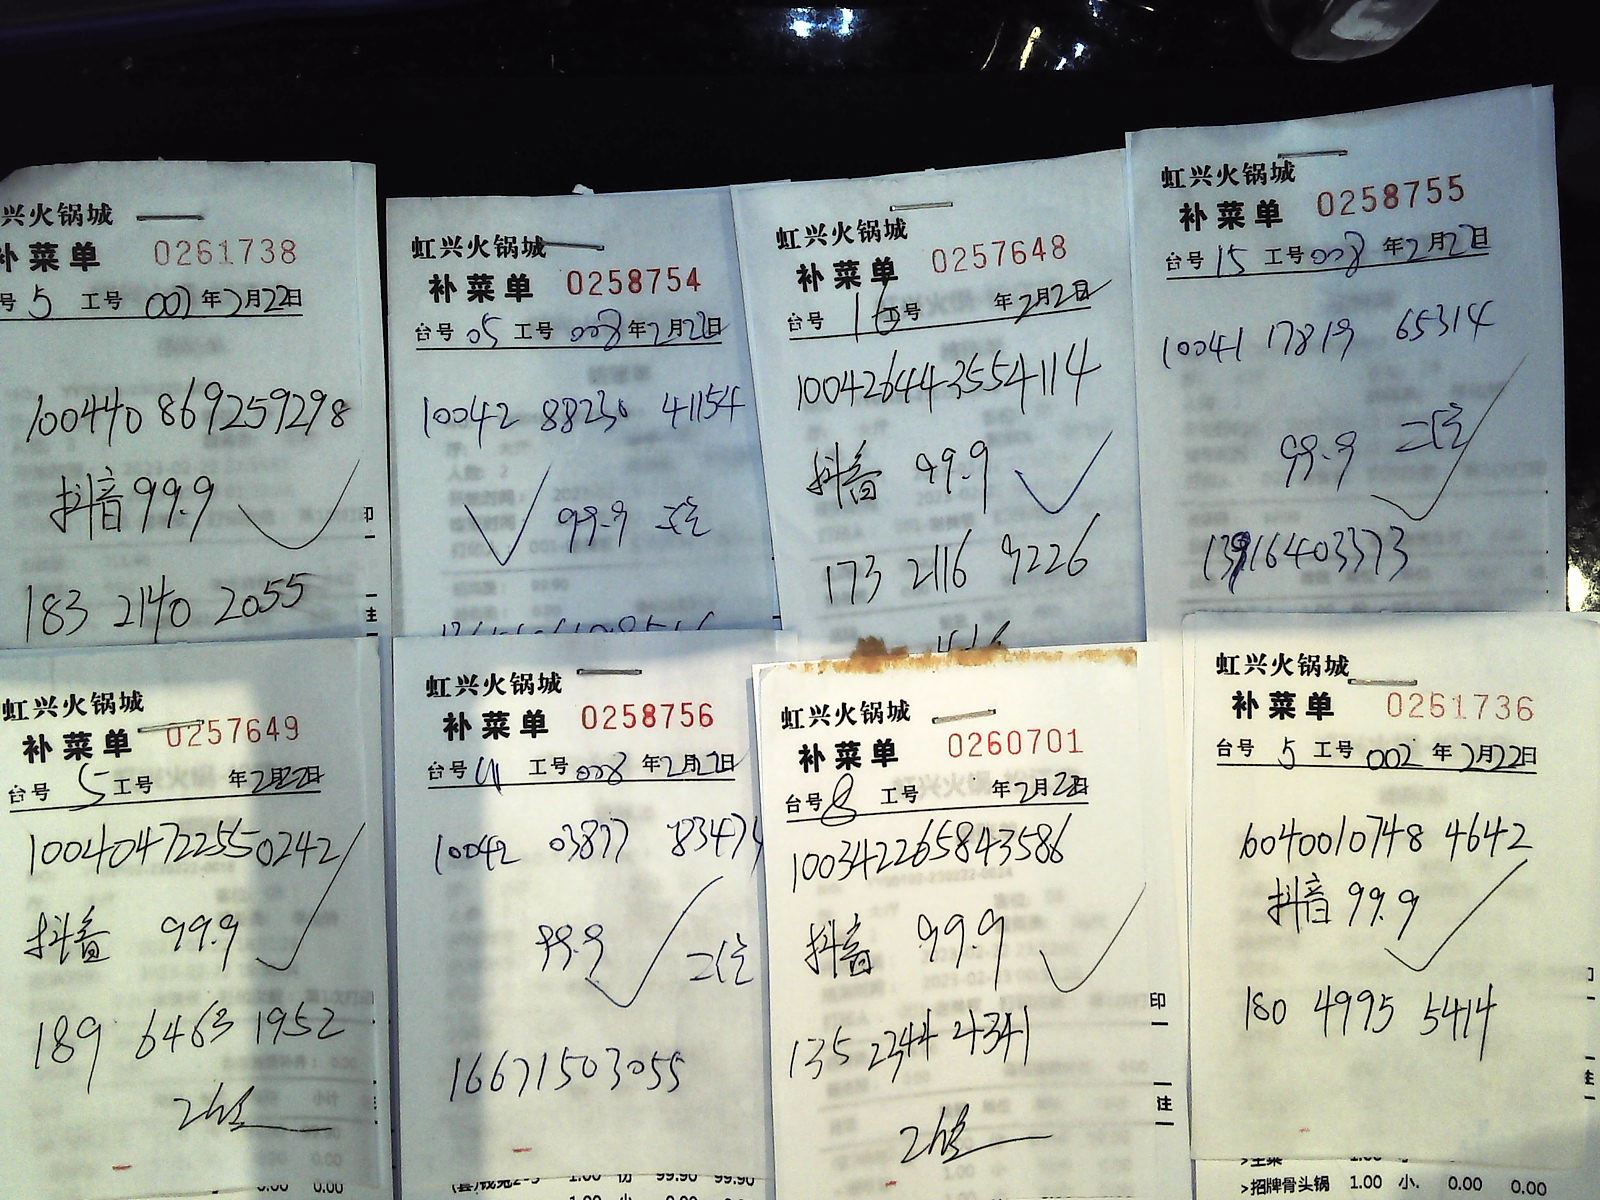 兴火锅城
补菜单 0261738
号 5 工号 002 年2月22日
100440869259298
抖音99.9
183 2140 2055
印
注
虹兴火锅城
补菜单 0258754
台号 05 工号 008 年2月22日
10042 88230 41154
99.9
虹兴火锅城
补菜单 0257648
台号 16 工号 年2月22日
100426443554114
抖音 99.9
173 2116 9226
虹兴火锅城
补菜单 0258755
台号 15 工号 008 年2月22日
10041 17819 65314
99.9
13916403373
虹兴火锅城
补菜单 0257649
台号 5 工号 年2月22日
100404722550242
抖音 99.9
189 6463 1952
虹兴火锅城
补菜单 0258756
台号 工号 008 年2月22日
10042 03877 83474
99.9
16671503055
1.00 份 99.90 99.90
虹兴火锅城
补菜单 0260701
台号 8 工号 年2月22日
100342265843586
抖音 99.9
135 2344 4341
印
注
虹兴火锅城
补菜单 0261736
台号 5 工号 002 年2月22日
6040010748 4642
抖音 99.9
180 4995 5414
>招牌骨头锅 1.00 小. 0.00 0.00